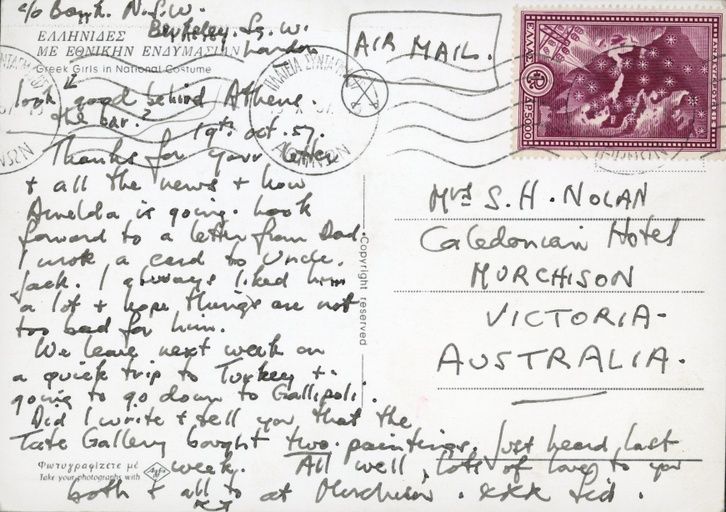 c/o Bank. N.S.W.
Berkeley. Sq. W.
London
ΕΛΛΗΝΙΔΕΣ
ΜΕ ΕΘΝΙΚΗΝ ΕΝΔΥΜΑΣΙΑΝ
Greek Girls in National Costume
AIR MAIL.
look good behind Athens.
the bar?
19th. Oct. 57.
Thanks for your letter
+ all the news + how
Amelda is going. Look
forward to a letter from Dad.
I wrote a card to Uncle.
Jack. I always liked him
a lot + hope things are not
too bad for him.
We leave next week on
a quick trip to Turkey +
going to go down to Gallipoli.
Did I write + tell you that the
Tate Gallery bought two paintings. Just heard last
week. All well, lots of love to you
both + all to at Murchison. xxx Sid.
Φωτογραφίζετε μέ
Take your photographs with
Agfa
Copyright reserved
ΕΛΛΑΣ
ΔΡ. 5000
Mrs S. H. NOLAN
Caledonian Hotel
MURCHISON
VICTORIA-
AUSTRALIA.